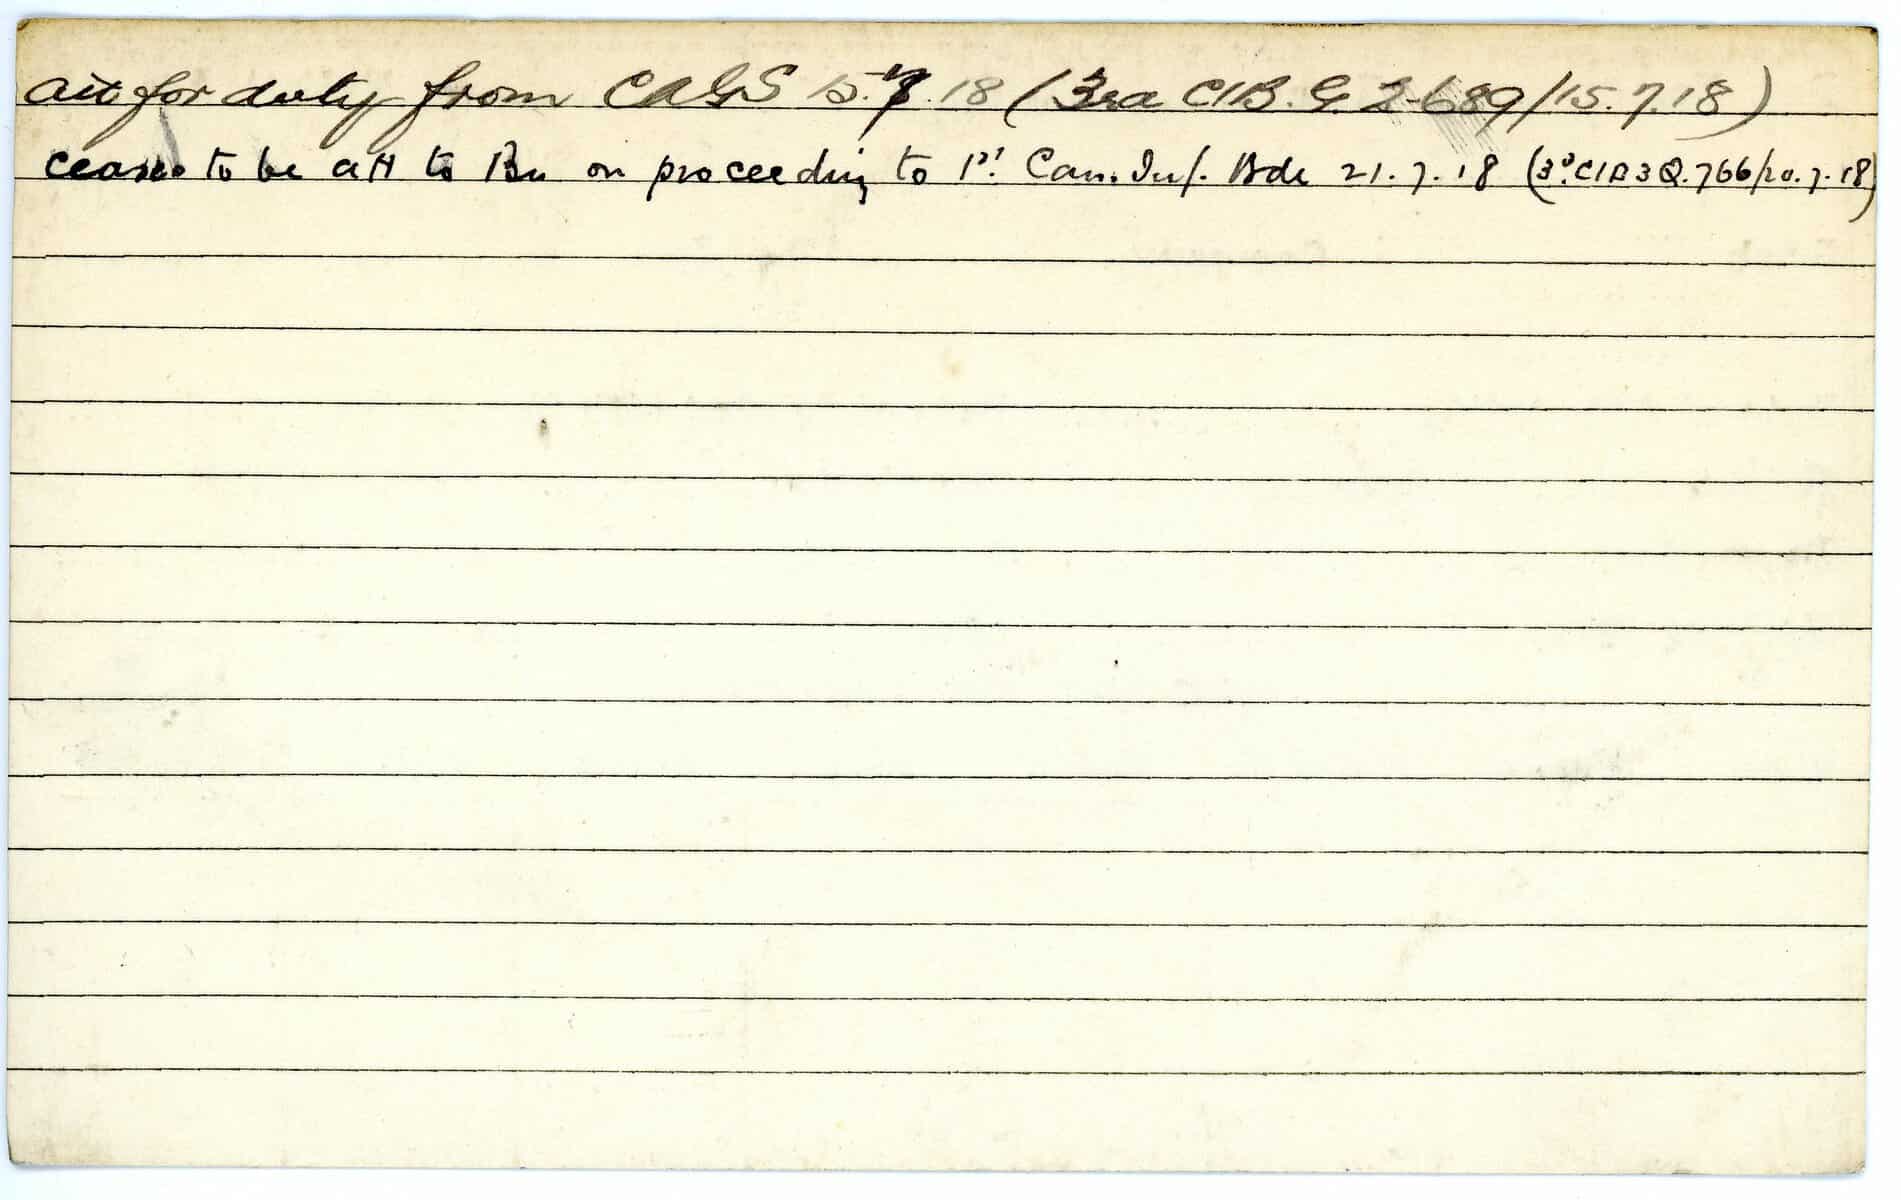 att for duty from CAGS 15.7.18 (3rd CIB. G. 2-689/15.7.18)
ceases to be att to Bn on proceeding to 1st Can. Inf. Bde 21.7.18 (3d CIB 3Q.766/20.7.18)